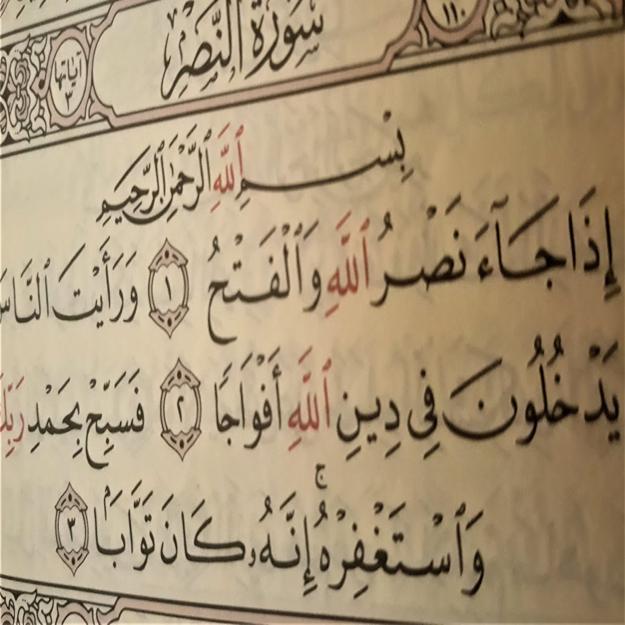 سُورَةُ النَّصْرِ
١١٠
آيَاتُهَا
٣
بِسْمِ ٱللَّهِ ٱلرَّحْمَٰنِ ٱلرَّحِيمِ
إِذَا جَآءَ نَصْرُ ٱللَّهِ وَٱلْفَتْحُ ١ وَرَأَيْتَ ٱلنَّاسَ
يَدْخُلُونَ فِى دِينِ ٱللَّهِ أَفْوَاجًا ٢ فَسَبِّحْ بِحَمْدِ رَبِّكَ
وَٱسْتَغْفِرْهُ ۚ إِنَّهُۥ كَانَ تَوَّابًۢا ٣